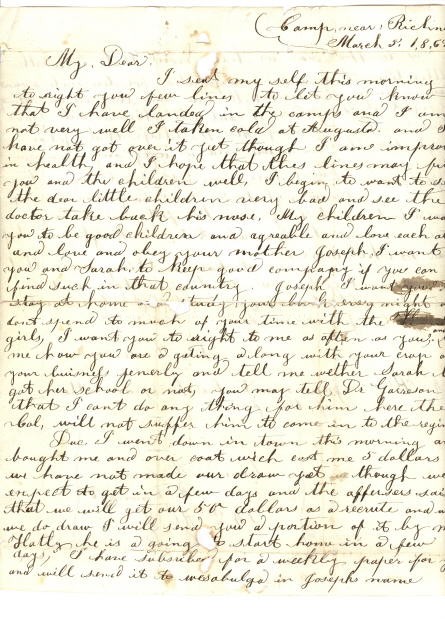 Camp, near, Richm
March 3. 1.8.6
My, Dear.
I seat my self this morning
to right you few lines to let you know
that I have landed in the camps and I am
not very well I taken cold at Augusta. and
have not got over it yet though I ame improv
in health and I hope that thes lines may
you and the children well, I begin to want to
the dear little children very bad and see the
doctor take back his nose. My children I w
you to be good children and agreable and love each
and love and obey your mother Joseph, I want
you and Sarah, to keep good company if you can
find such in that country Joseph I want your
stay at home and study your book every night
dont spend to much of your time with the
girls, I want you to right to me as often as you,
me how you are a gating along with your crop
your buisness generly and tell me wether Sarah
got her school or not, you may tell Dr Garrison
that I can't do any thing for him here th
col, will not suffer him to come in to the regi
Due I went down in town this morning a
bought me and over coat wich cost me 5 dollars
we have not made our draw yet though we
expect to get in a few days and the offersers sa
that we will get our 50 dollar as a recrute and
we do draw I will send you a portion of it by
Flatly he is a going to start home in a few
days, I have subscribed for a weekly paper for
and will send it to wesobulga in Josephs name